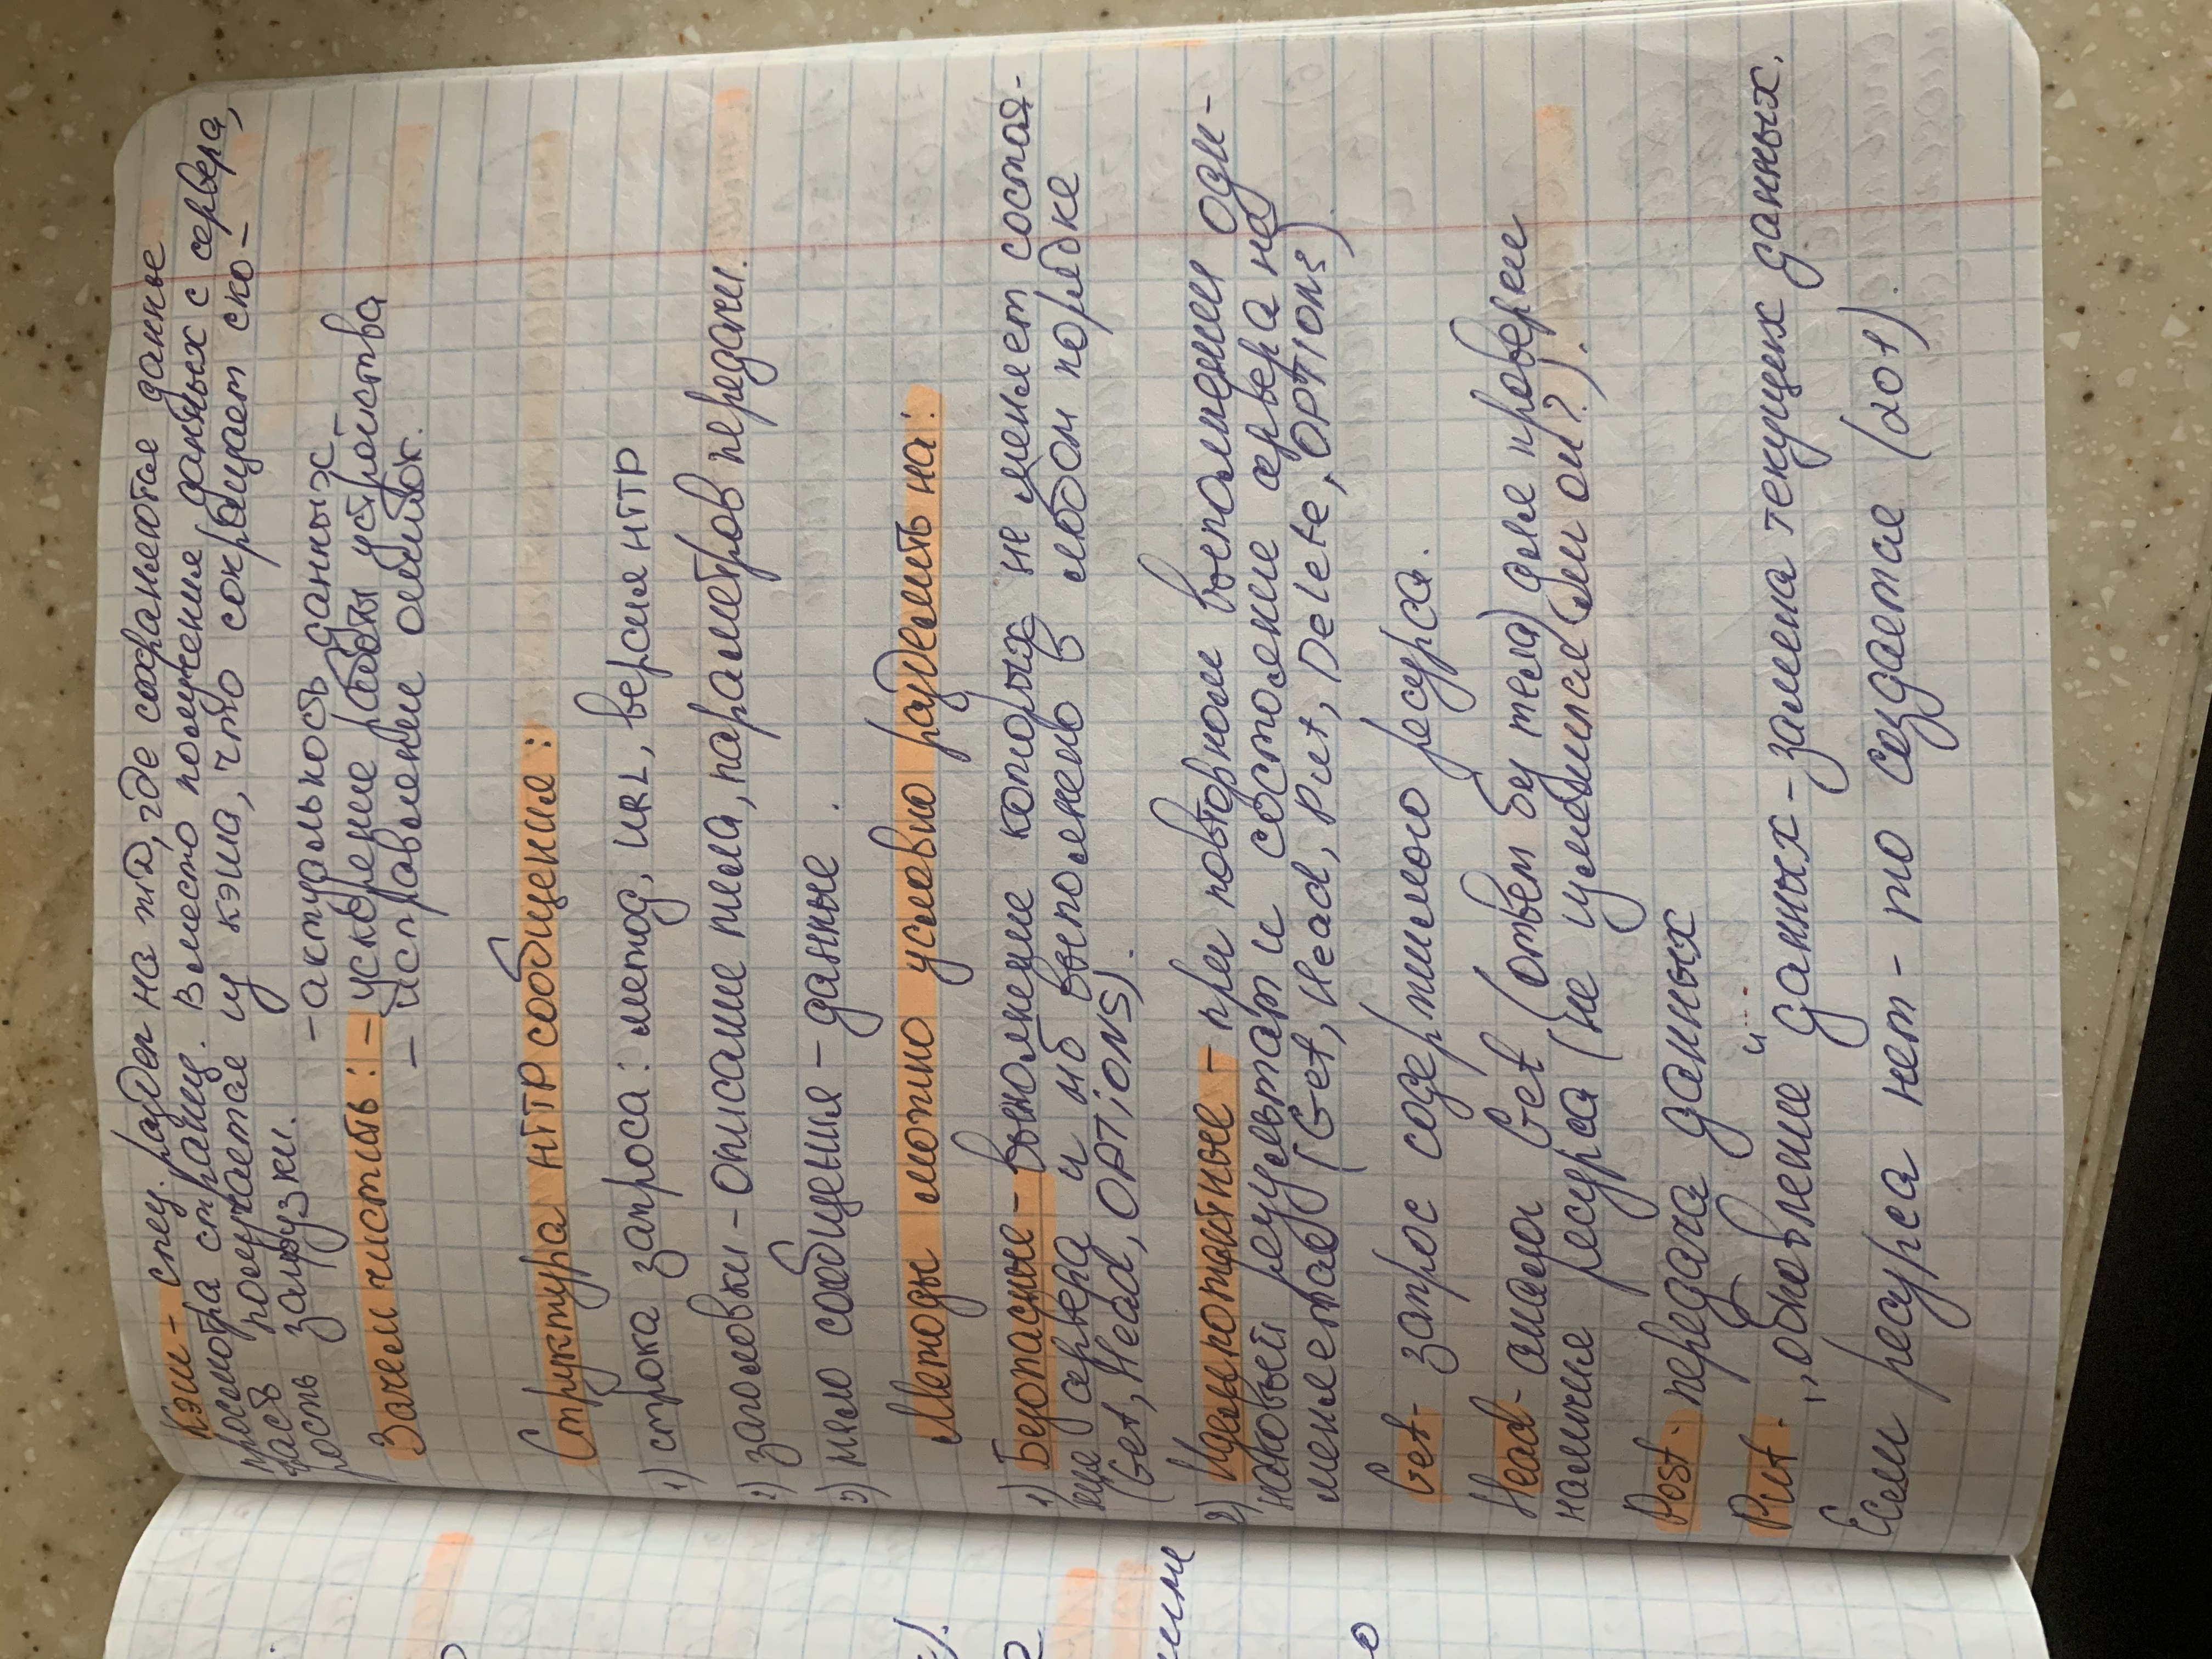 Кэш - спец. раздел на жД, где сохраняются данные
просмотра страниц. Вместо получения данных с сервера,
часть получается из кэша, что сокращает ско-
рость загрузки.
- актуальность данных
Зачем чистить: - ускорение работы устройства
- исправление ошибок.
Структура HTTP сообщения:
1) строка запроса: метод, URL, версия HTTP
2) заголовки - описание тела, параметров передачи.
3) тело сообщения - данные.
Методы можно условно разделить на:
1) Безопасные - выполнение которых не меняет состоя-
ние сервера и мб выполнено в любом порядке
(Get, Head, OPTIONS).
2) Идемпотентные - при повторном выполнении оди-
наковый результат и состояние сервера не
меняется (Get, Head, Put, Delete, OPTIONS).
Get - запрос содержимого ресурса.
Head - аналог Get (ответ без тела) для проверки
наличия ресурса (не изменился ли он?).
Post - передача данных
Put - „обновление" данных - замена текущих данных.
Если ресурса нет - то создается (201).